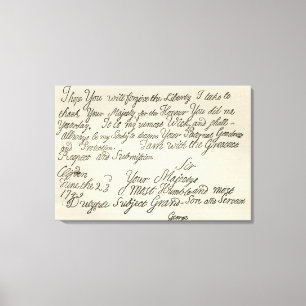 I hope You will forgive the Liberty I take to
thank Your Majesty for the Honour You did me
Yesterday. It is my utmost Wish, and shall
always be my Study to deserve Your Paternal Goodness
and Protection. I am with the Greatest
Respect and Submission
Sir
Your Majestys
June the 23
1749
Most Humble and most
Dutyful Subject Grand-Son and Servant
George